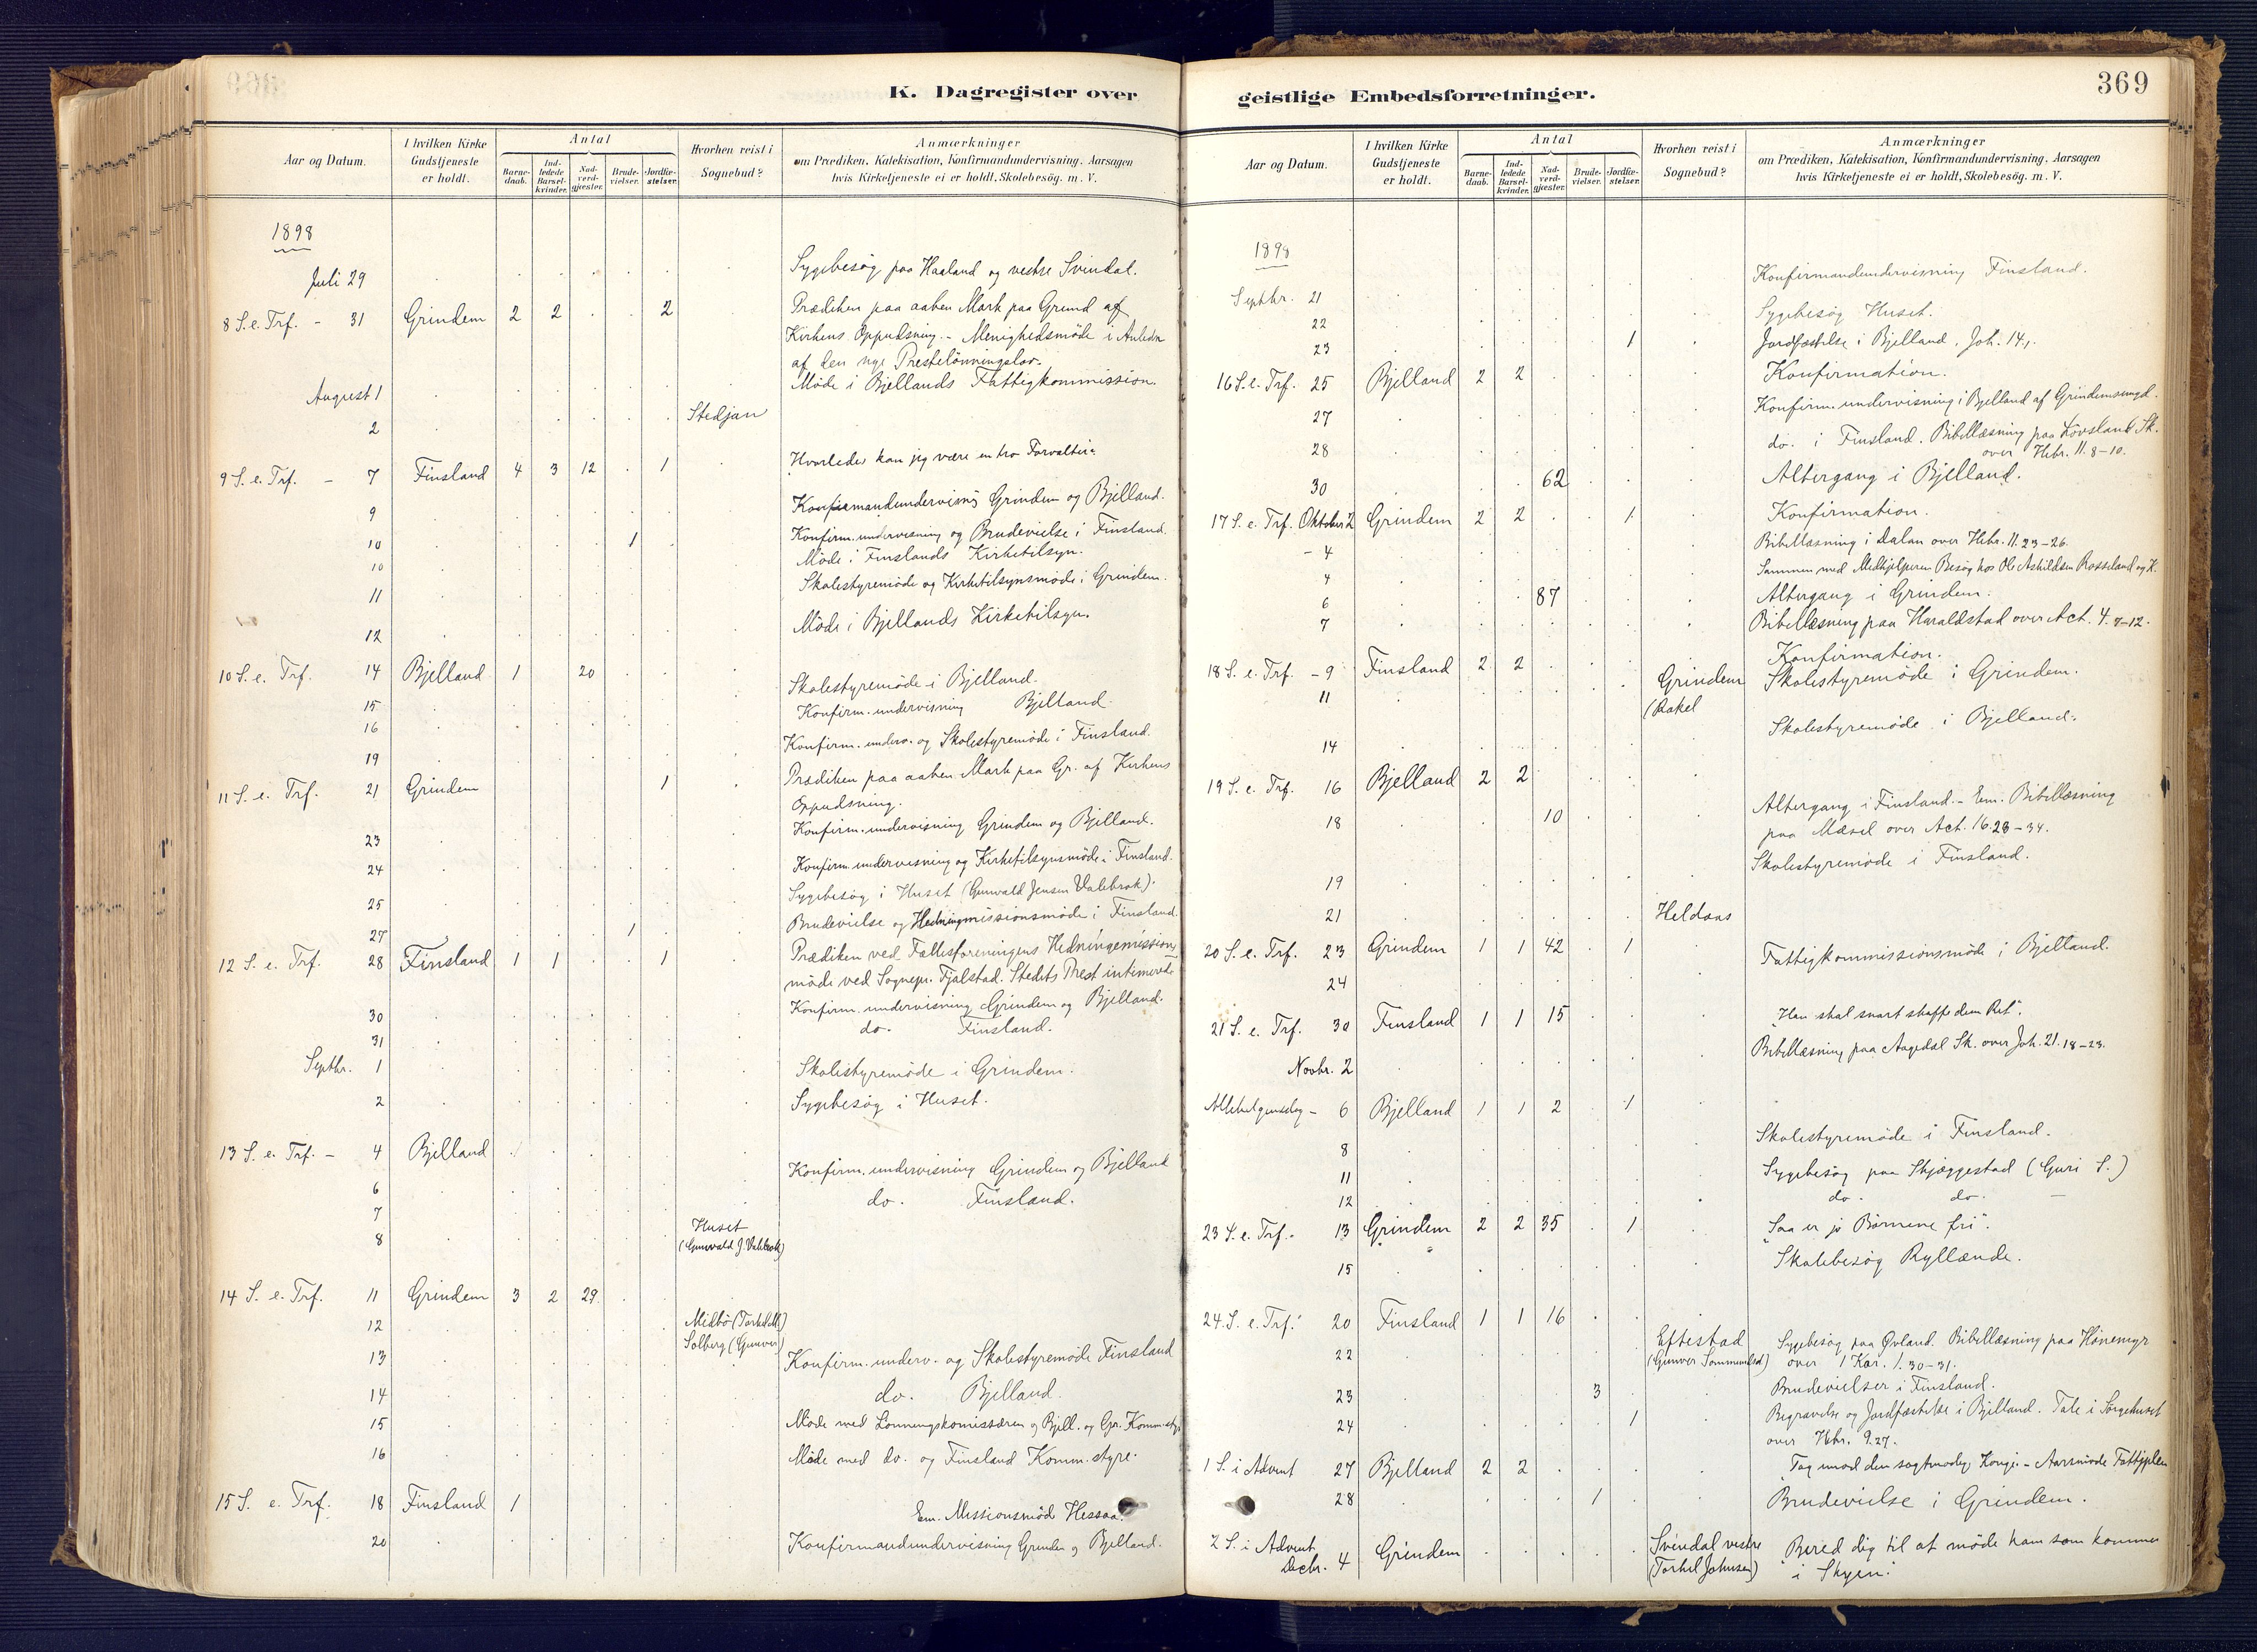 K. Dagregister over
Aar og Datum. I hvilken Kirke Gudstjeneste er holdt. Antal Barnedaab. Indledede Barselkvinder. Nadverdgjæster. Brudevielser. Jordfæstelser. Hvorhen reist i Sognebud? Anmærkninger om Prædiken, Katekisation, Konfirmandundervisning, Aarsagen hvis Kirketjeneste ei er holdt, Skolebesög. m. V.
1898
Juli 29 Sygebesög paa Haaland og vestre Svindal.
8 S. e. Trf. - 31 Grindem 2 2 . . 2 Prædiken paa aaben Mark paa Grund af
Kirkens Oppudsning. - Menighedsmöde i Anledn
af den nye Prestelönningslov.
August 1 Möde i Bjellands Fattigkommission.
2 Stedjan
9 S. e. Trf. - 7 Finsland 4 3 12 . 1 Hvorledes kan jeg være en tro Forvalter?
9 Konfirmandundervisn. Grindem og Bjelland.
10 1 Konfirm. undervisning og Brudevielse i Finsland.
10 Möde i Finslands Kirketilsyn.
11 Skolestyremöde og Kirketilsynsmöde i Grindem.
12 Möde i Bjellands Kirketilsyn.
10 S. e. Trf. 14 Bjelland 1 20
15 Skolestyremöde i Bjelland.
16 Konfirm. undervisning Bjelland.
19 Konfirm. underv. og Skolestyremöde i Finsland.
11 S. e. Trf. 21 Grindem 1 Prædiken paa aaben Mark paa Gr. af Kirkens
Oppudsning.
23 Konfirm. undervisning Grindem og Bjelland.
24 Konfirm. undervisning og Kirketilsynsmöde i Finsland.
25 Sygebesög i Huset (Gunvald Jensen Valebrok).
27 1 Brudevielse og Hedningmissionsmöde i Finsland.
12 S. e. Trf. 28 Finsland 1 1 . . 1 Prædiken ved Fællesforeningens Hedningemissions-
möde ved Sognepr. Fjalstad. Stedets Prest intimerede
30 Konfirm. undervisning Grindem og Bjelland.
31 do. Finsland.
Septbr. 1 Skolestyremöde i Grindem.
2 Sygebesög i Huset.
13 S. e. Trf. - 4 Bjelland
6 Konfirm. undervisning Grindem og Bjelland
7 do. Finsland.
8 Huset
(Gunvald J. Valebrok)
14 S. e. Trf. 11 Grindem 3 2 29
12 Midbö
Solberg (Gunver)
13 Konfirm. underv. og Skolestyremöde Finsland
14 do. Bjelland.
15 Möde med Lönningskomissæren og Bjell. og Gr. Komm.sty
16 Möde med do. og Finsland Komm. styre.
15 S. e. Trf. 18 Finsland 1 Em. Missionsmöde Hessaa.
20 Konfirmandundervisning Grindem og Bjelland.
geistlige Embedsforretninger.
369
Aar og Datum. I hvilken Kirke Gudstjeneste er holdt. Antal Barnedaab. Indledede Barselkvinder. Nadverdgjæster. Brudevielser. Jordfæstelser. Hvorhen reist i Sognebud? Anmærkninger om Prædiken, Katekisation, Konfirmandundervisning, Aarsagen hvis Kirketjeneste ei er holdt, Skolebesög. m. V.
1898
Septbr. 21 Konfirmandundervisning Finsland.
22 Sygebesög Huset.
23 1 Jordfæstelse i Bjelland. Joh. 14,1.
16 S. e. Trf. 25 Bjelland 2 2 Konfirmation.
27 Konfirm. undervisning i Bjelland af Grindemsungd.
28 do. i Finsland. Bibellæsning paa Lövsland Sk.
over Hebr. 11. 8-10.
30 62 Altergang i Bjelland.
17 S. e. Trf. Oktober 2 Grindem 2 2 . . 1 Konfirmation.
- 4 Bibellæsning i Dalan over Hebr. 11. 23-26.
4 Sammen med Medhjelperen Besög hos Ole Askildsen Rosseland og K.
6 87 Altergang i Grindem.
7 Bibellæsning paa Haraldstad over Act. 4. 7-12.
18 S. e. Trf. - 9 Finsland 2 2 Konfirmation.
11 Grindem Skolestyremöde i Grindem.
(Rakel
14 Skolestyremöde i Bjelland.
19 S. e. Trf. 16 Bjelland 2 2
18 10 Altergang i Finsland. - Em. Bibellæsning
paa Mæsel over Act. 16. 23-34.
19 Skolestyremöde i Finsland.
21 Heldaas
20 S. e. Trf. 23 Grindem 1 1 42 . 1
24 Fattigkommissionsmöde i Bjelland.
21 S. e. Trf. 30 Finsland 1 1 15 „Han skal snart skaffe dem Ret“.
Novbr. 2 Bibellæsning paa Aagedal Sk. over Joh. 21. 18-23.
Allehelgensdag - 6 Bjelland 1 1 2 . 1
8 Skolestyremöde i Finsland.
11 Sygebesög paa Skjæggestad (Guri S.)
12 do. do. -
23 S. e. Trf. 13 Grindem 2 2 35 . 1 „Saa er jo Börnene fri“.
15 Skolebesög Ryllænde.
24. S. e. Trf. 20 Finsland 1 1 16
22 Eftestad Sygebesög paa Øvland. Bibellæsning paa Hönemyr
(Gunver) over 1 Kor. 1. 30-31.
23 3 Brudevielser i Finsland.
24 1 Begravelse og Jordfæstelse i Bjelland. Tale i Sörgehuset
over Hebr. 9. 27.
1 S. i Advent 27 Bjelland 2 2 „Tag imod den sagtmodige Konge. - Aarsmöde
28 1 Brudevielse i Grindem.
2 S. i Advent
Decbr. 4 Grindem Svindal vestre „Bered dig til at möde ham som kommer
(Torkel Johnsen) i Skyen.“